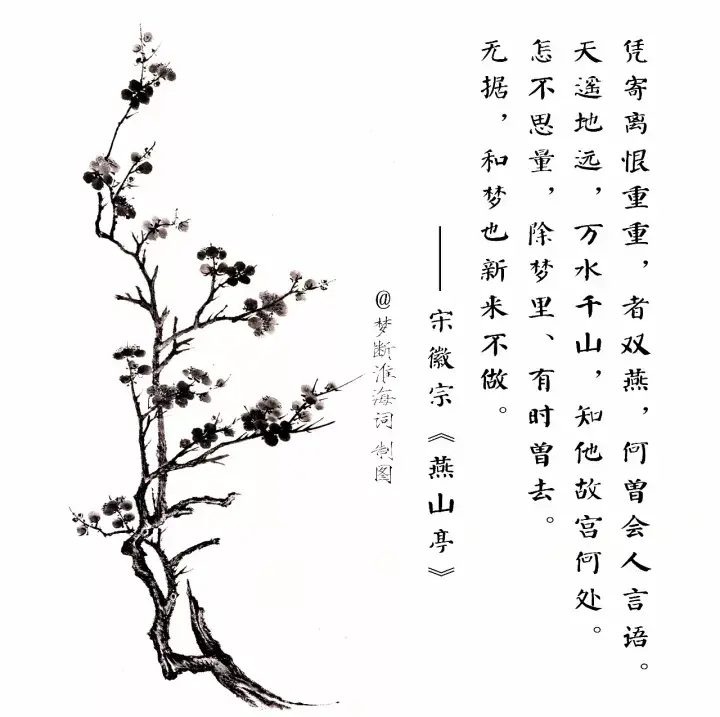 凭寄离恨重重，者双燕，何曾会人言语。
天遥地远，万水千山，知他故宫何处。
怎不思量，除梦里、有时曾去。
无据，和梦也新来不做。
——宋徽宗《燕山亭》
@梦断淮海词 制图